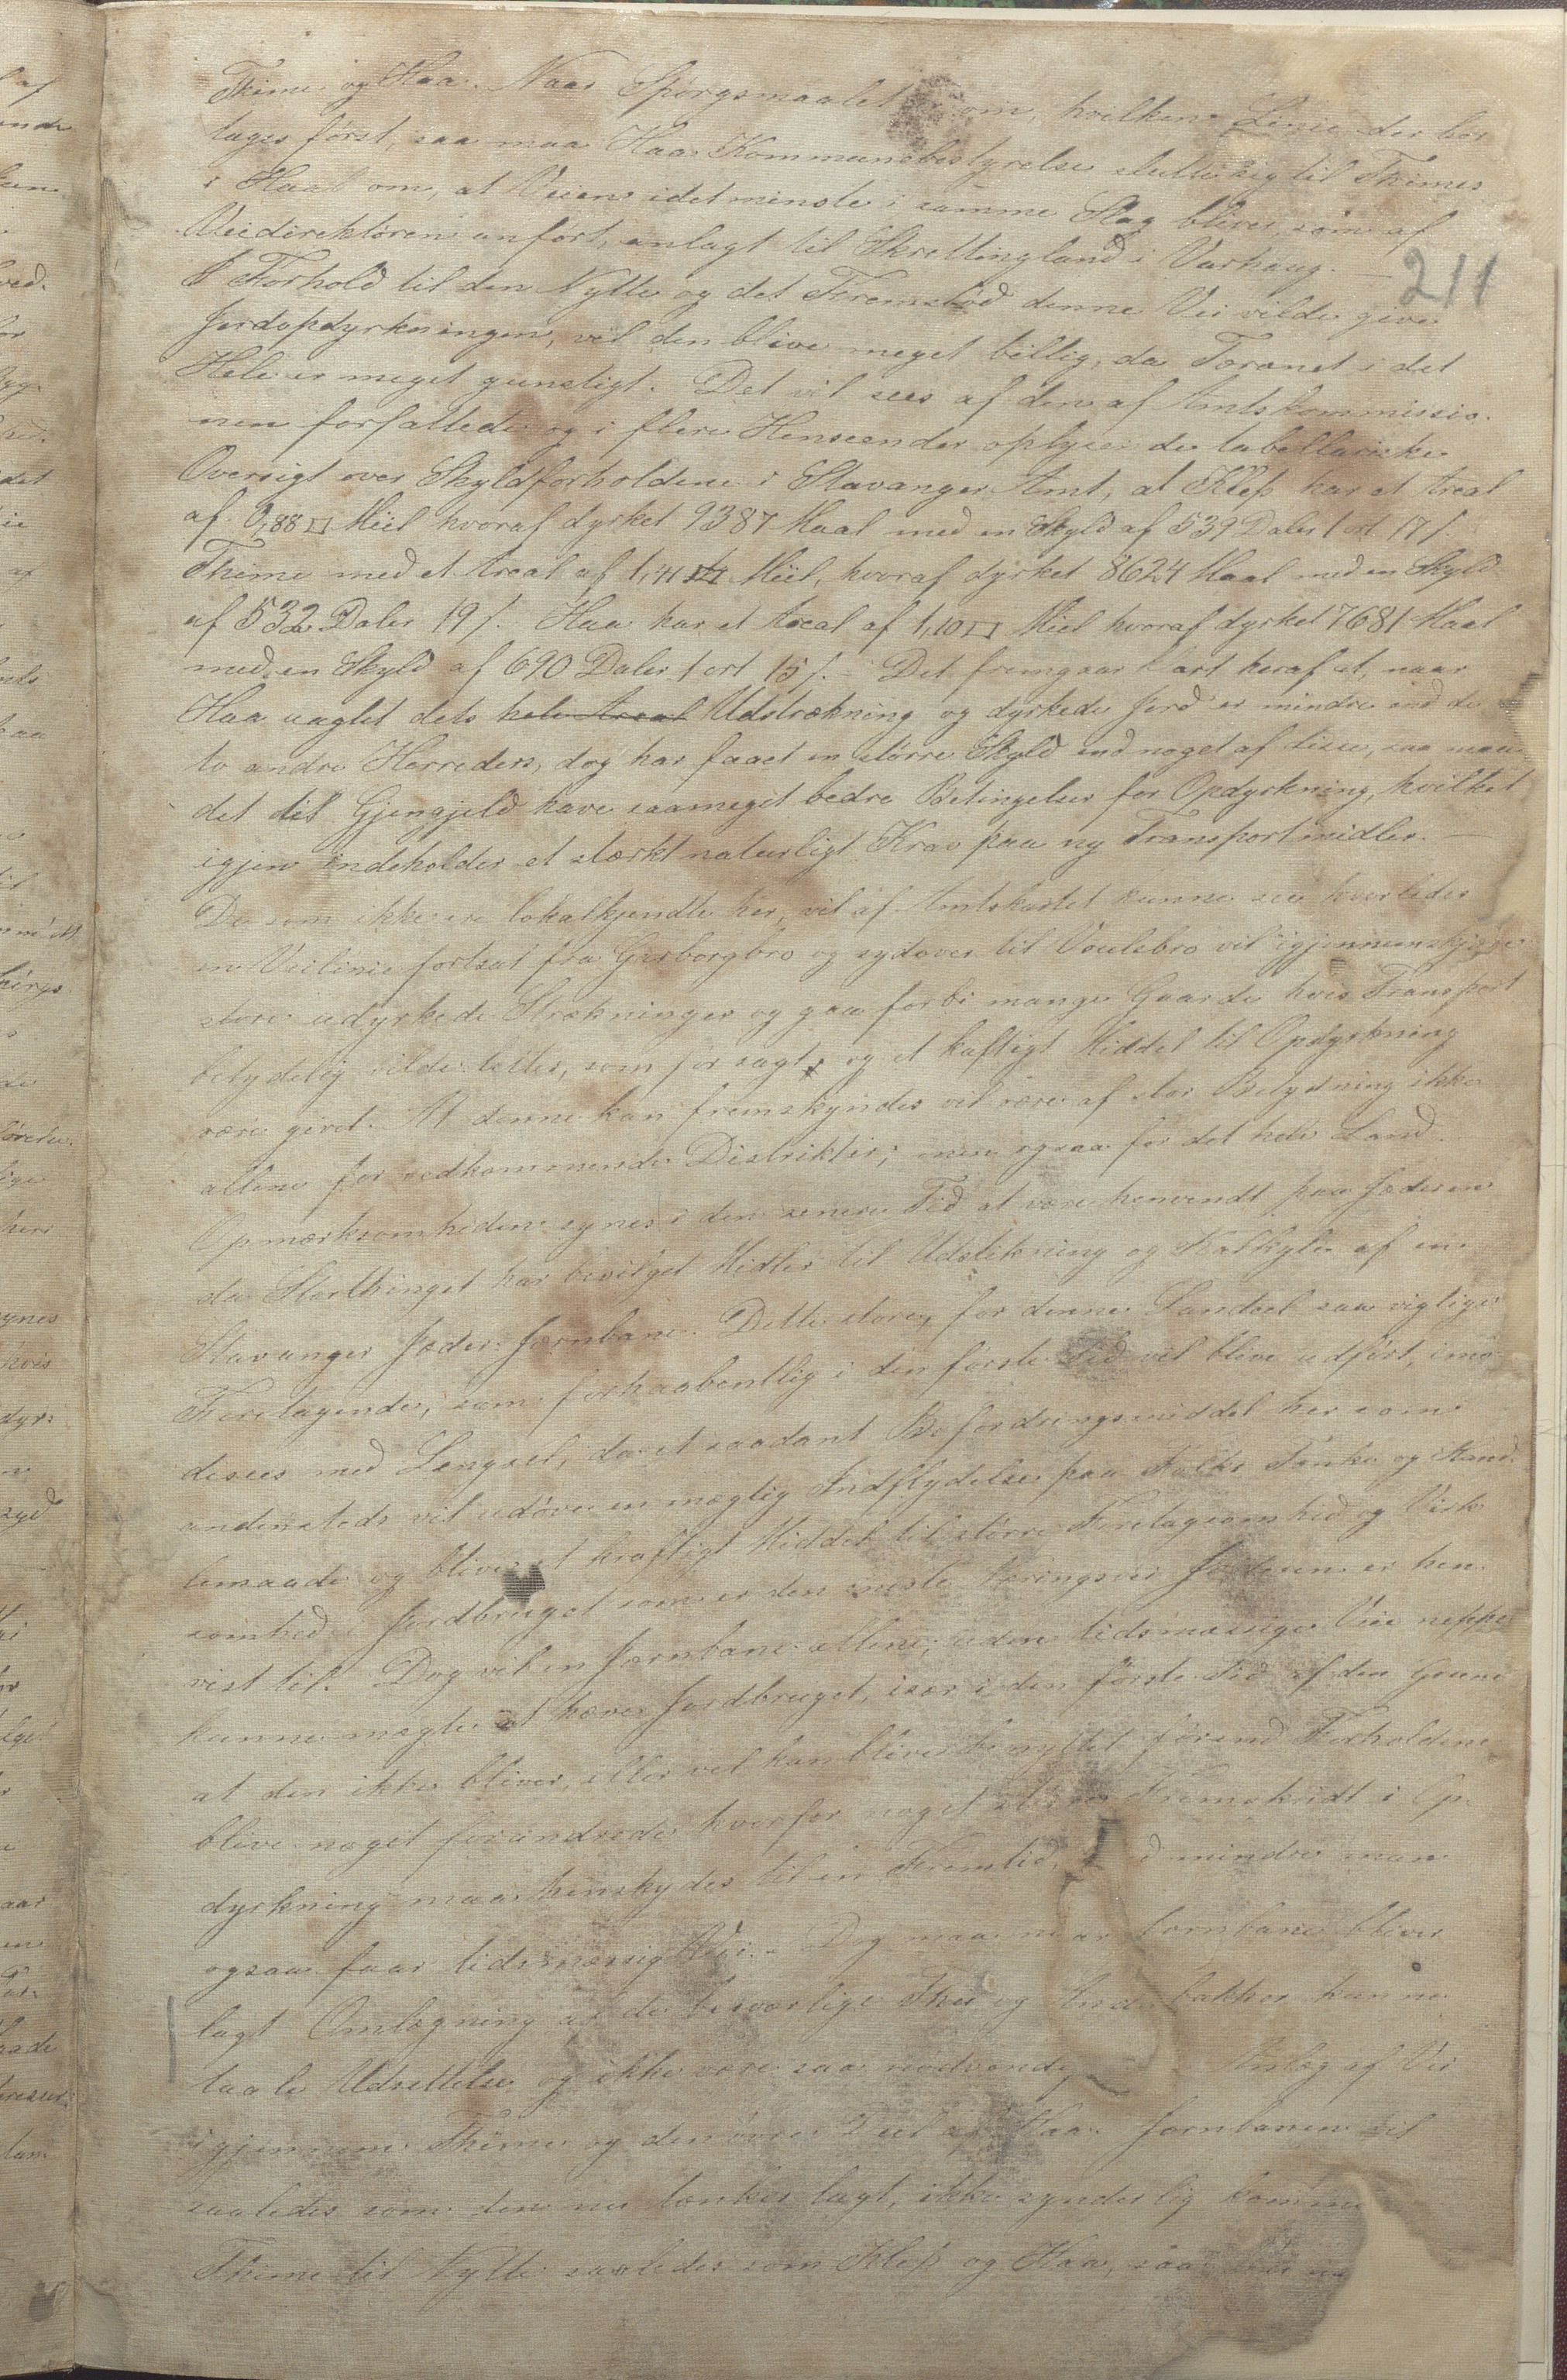 Thime og Haa. Naar Spørgsmaalet er om, hvilken Linie der bør
tages først, saa maa Haa Kommunebestyrelse slutte sig til Thimes
i Haab om, at Veien idetminste i samme Slag bliver, som af
Veidirektøren anført, anlagt til Skrettingland i Varhaug. —
211
I Forhold til den Nytte og det Fremstød denne Vei vilde give
Jordopdyrkningen, vil den blive meget billig, da Terænet i det
Hele er meget gunstigt. Det vil sees af den af Amtskommissio-
nen forfattede og i flere Henseender oplysende tabellariske
Oversigt over Skyldforholdene i Stavanger Amt, at Klep har et Areal
af 0,88 □ Miil hvoraf dyrket 9387 Maal med en Skyld af 539 Daler 1 ort 17 ſ.
Thime med et Areal af 1,41 □ Miil, hvoraf dyrket 8624 Maal med en Skyld
af 532 Daler 19 ſ. Haa har et Areal af 1,10 □ Miil hvoraf dyrket 7681 Maal
med en Skyld af 690 Daler 1 ort 15 ſ. – Det fremgaar klart heraf at, naar
Haa uagtet dets hele Areal Udstrækning og dyrkede Jord er mindre end de
to andre Herreders, dog har faaet en større Skyld end noget af disse, saa maa
det til Gjengjeld have saameget bedre Betingelser for Opdyrkning, hvilket
igjen indeholder et stærkt naturligt Krav paa ny Transportmidler. —
De som ikke ere lokalkjendte her, vil af Amtskartet kunne see hvorledes
en Veilinie fortsat fra Gjerborgbro og sydover til Voulebro vil igjennemskjære
store udyrkede Strækninger og gaa forbi mange Gaarde hvis Transport
betydelig vilde lettes, som før sagt, og et kraftigt Middel til Opdyrkning
være givet. At denne kan fremskyndes vil være af stor Betydning ikke
allene for vedkommende Distrikter, men ogsaa for det hele Land.
Opmærksomheden synes i den senere Tid at være henvendt paa Jæderen
da Storthinget har bevilget Midler til Udstikning og Kalkyle af en
Stavanger Jæder: Jernbane. Dette store, for denne Landsel saa vigtige
Foretagende, som forhaabentlig i den første Tid vil blive udført, imø-
desees med Længsel, da et saadant Befordringsmiddel her som
andensteds vil udøve en mægtig Indflydelse paa Folks Tanke og Hand-
lemaade og blive et kraftigt Middel til større Foretagsomhed og Virk-
somhed i Jordbruget som er den eneste Næringsvei Jæderen er hen-
vist til. Dog vil en Jernbane allene, uden tidsmæssige Veie neppe
kunne mægte at hæve Jordbruget, især i den første Tid af den Grund
at den ikke bliver, eller vel kan blive benyttet førend Forholdene
blive noget forandrede hvorfor noget større Fremskridt i Op-
dyrkning maa henskydes til en Fremtid, mindre man
ogsaa faar tidsmæssig Vei. – Dog maa naar Jernbane bliver
lagt Omlægning af de besværlige og bakker kunne
taale Udsettelse og ikke være saa nødvendig Anlæg af Vei
igjennem Thime og den øvre Deel af Haa. Jernbanen vil
saaledes som den nu tænkes lagt, ikke synderlig komme
Thime til Nytte saaledes som Klep og Haa, saa